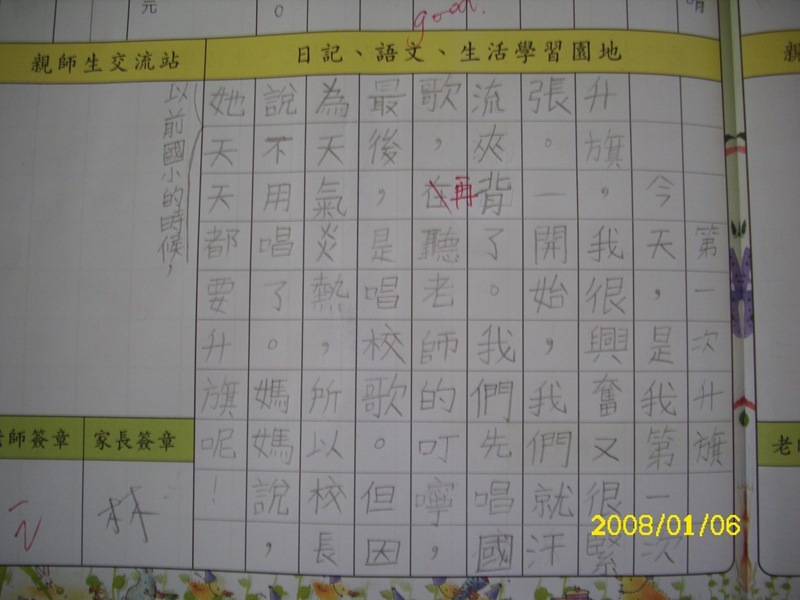 good.
日記、語文、生活學習園地
親師生交流站
第一次升旗
今天，是我第一次
升旗，我很興奮又很緊
張。一開始，我們就汗
流夾背了。我們先唱國
歌，在再聽老師的叮嚀，
最後，是唱校歌。但因
為天氣炎熱，所以校長
說不用唱了。媽媽說，
她天天都要升旗呢！
以前國小的時候，
家長簽章
師簽章
林
2008/01/06